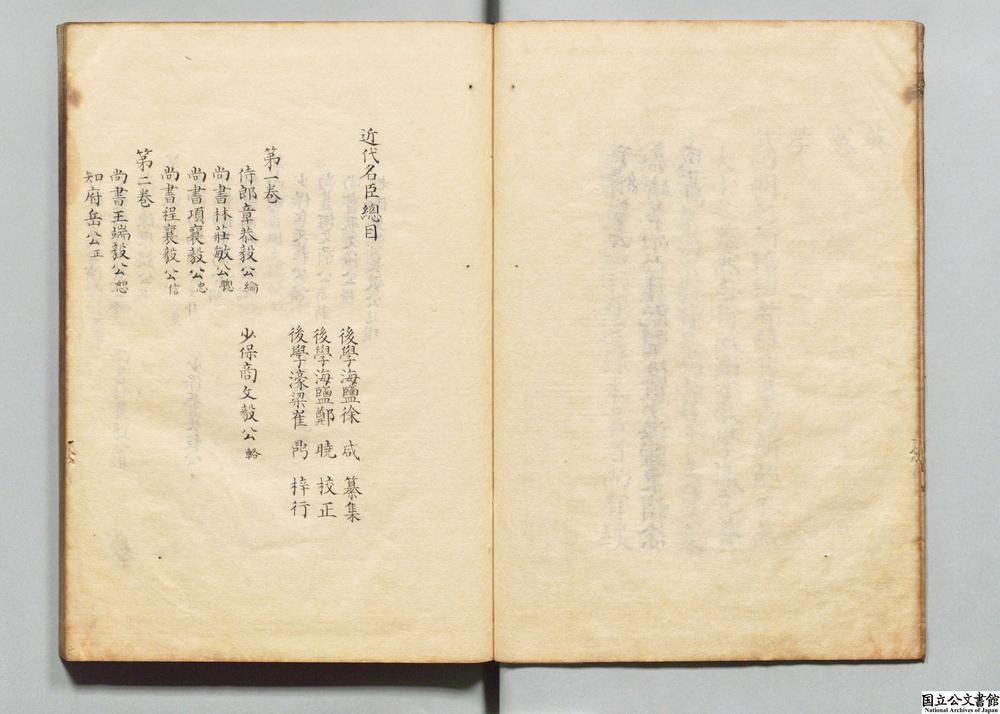 近代名臣總目
後學海鹽徐咸纂集
後學海鹽鄭曉校正
後學濠梁崔鼎梓行
第一卷
侍郎章恭毅公綸
少保商文毅公輅
尚書林莊敏公聰
尚書項襄毅公忠
尚書程襄毅公信
第二卷
尚書王端毅公恕
知府岳公正
国立公文書館
National Archives of Japan